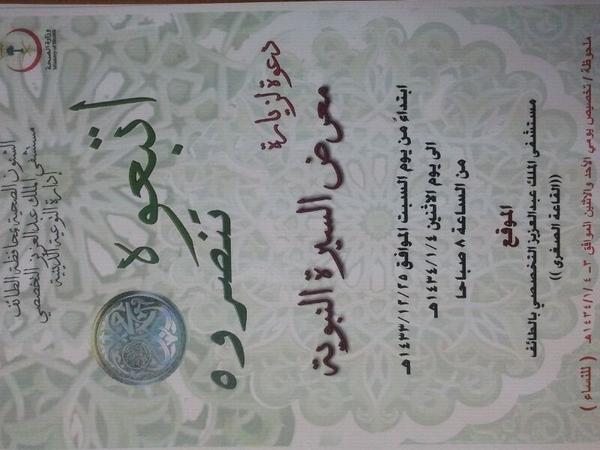 وزارة الصحة
Ministry of Health
الشئون الصحية بمحافظة الطائف
مستشفى الملك عبدالعزيز التخصصي
إدارة التوعية الدينية
اتبعوه
تنصروه
دعوة لزيارة
معرض السيرة النبوية
ابتداءً من يوم السبت الموافق ١٤٣٣/١٢/٢٥هـ
الى يوم الاثنين ١٤٣٤/١/٤هـ
من الساعة ٨ صباحا
الموقع
مستشفى الملك عبدالعزيز التخصصي بالطائف
((القاعة الصغرى ))
ملحوظة / تخصيص يومي الاحد والاثنين الموافق ٣ـ ١٤٣٤/١/٤هـ ( للنساء )